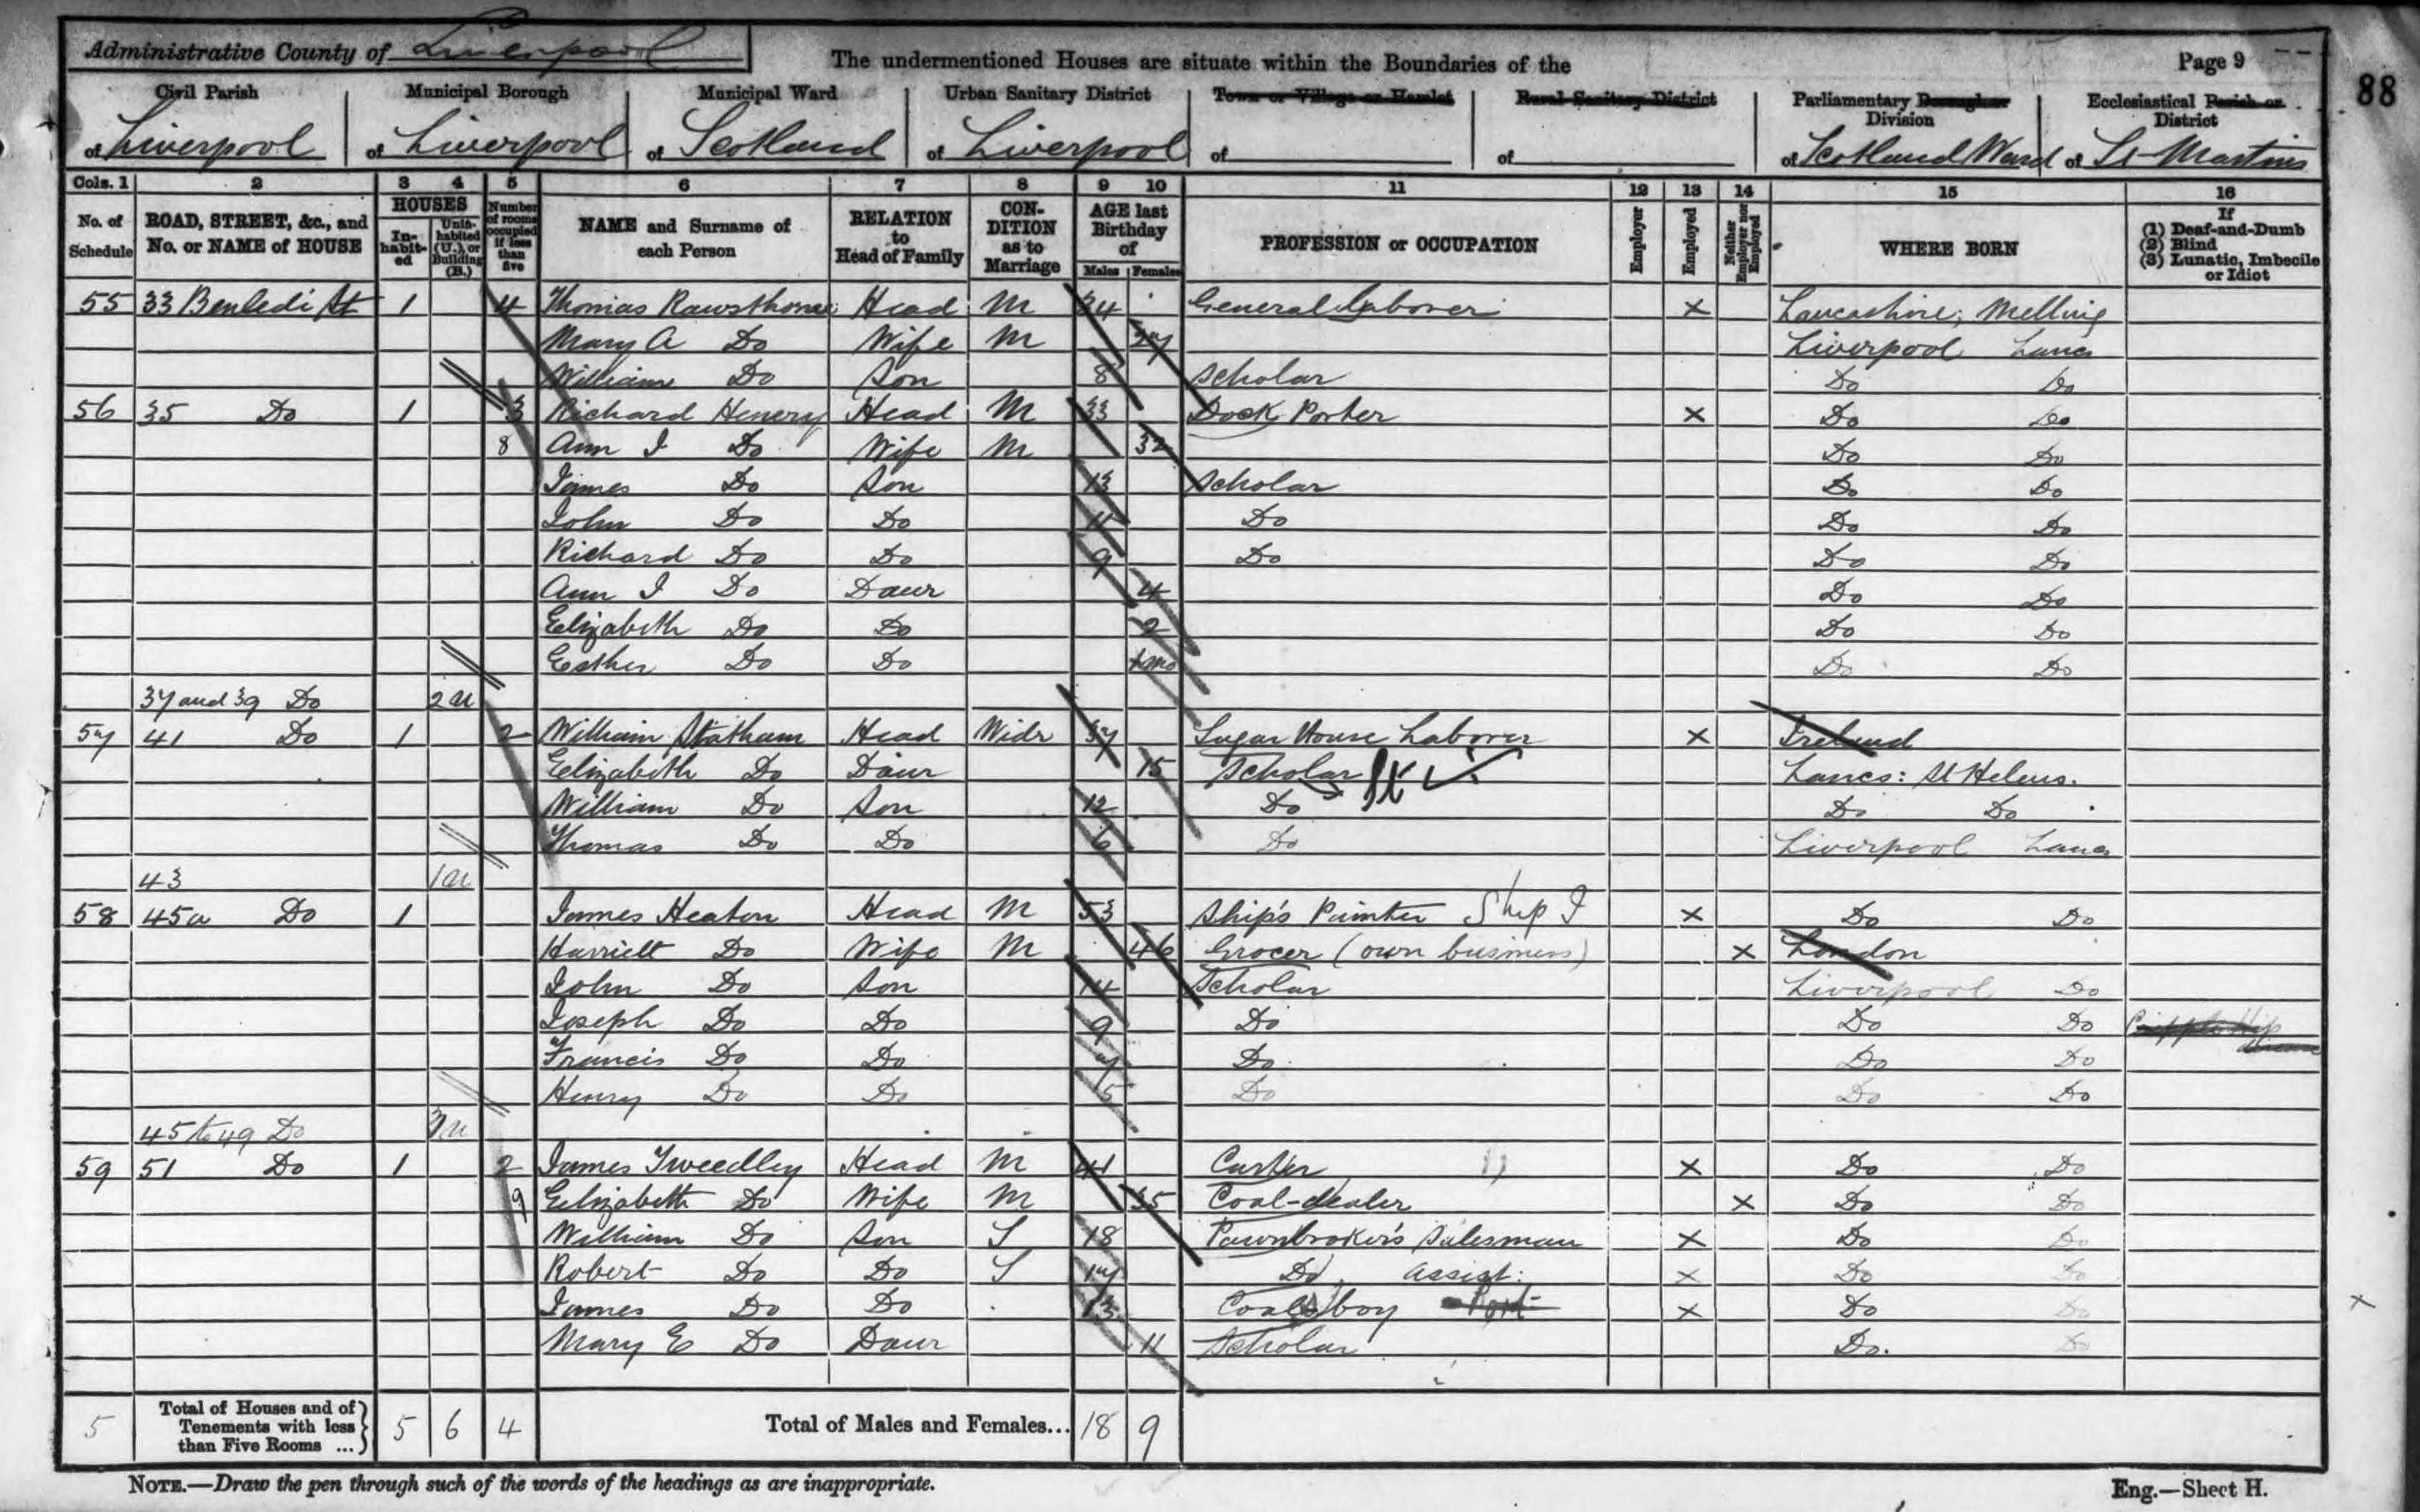 Administrative County of Liverpool
The undermentioned Houses are situate within the Boundaries of the
Page 9
88
Civil Parish of Liverpool
Municipal Borough of Liverpool
Municipal Ward of Scotland
Urban Sanitary District of Liverpool
Town or Village or Hamlet of
Rural Sanitary District of
Parliamentary Borough or Division of Scotland Ward
Ecclesiastical Parish or District of St Martins
Cols. 1 2 3 4 5 6 7 8 9 10 11 12 13 14 15 16
No. of Schedule
ROAD, STREET, &c., and No. or NAME of HOUSE
HOUSES
In-habit-ed
Unin-habited (U.), or Building (B.)
Number of rooms occupied if less than five
NAME and Surname of each Person
RELATION to Head of Family
CON-DITION as to Marriage
AGE last Birthday of
Males Females
PROFESSION or OCCUPATION
Employer
Employed
Neither Employer nor Employed
WHERE BORN
If
(1) Deaf-and-Dumb
(2) Blind
(3) Lunatic, Imbecile or Idiot
55 33 Benledi St 1 4 Thomas Rawsthorne Head M 34 General Laborer X Lancashire; Melling
Mary A Do Wife M 27 Liverpool Lancs
William Do Son 8 Scholar Do Do
56 35 Do 1 3 Richard Henery Head M 33 Dock Porter X Do Do
8 Ann J Do Wife M 32 Do Do
James Do Son 13 Scholar Do Do
John Do Do 11 Do Do Do
Richard Do Do 9 Do Do Do
Ann J Do Daur 4 Do Do
Elizabeth Do Do 2 Do Do
Esther Do Do mo Do Do
37 and 39 Do 2 U
57 41 Do 1 2 William Statham Head Widr 37 Sugar House Laborer X Ireland
Elizabeth Do Daur 15 Scholar St Lancs: St Helens.
William Do Son 12 Do Do Do
Thomas Do Do 6 Do Liverpool Lancs
43 1 U
58 45a Do 1 James Heaton Head M 53 Ship's Painter Ship I X Do Do
Harriett Do Wife M 46 Grocer (own business) X London
John Do Son 14 Scholar Liverpool Do
Joseph Do Do 9 Do Do Do Cripple Hip disease
Francis Do Do 7 Do Do Do
Henry Do Do 5 Do Do Do
45 to 49 Do 3 U
59 51 Do 1 2 James Tweedley Head M 41 Carter X Do Do
9 Elizabeth Do Wife M 35 Coal-dealer X Do Do
William Do Son S 18 Pawnbroker's Salesman X Do Do
Robert Do Do S 17 Do Assist: X Do Do
James Do Do 13 Coal boy Port X Do Do
Mary E Do Daur 11 Scholar Do. Do
5 Total of Houses and of Tenements with less than Five Rooms ... 5 6 4 Total of Males and Females... 18 9
NOTE.—Draw the pen through such of the words of the headings as are inappropriate.
Eng.—Sheet H.